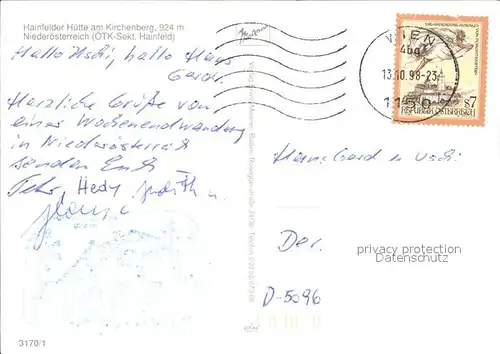 Hainfelder Hütte am Kirchenberg, 924 m
Niederösterreich (ÖTK-Sekt. Hainfeld)
Hallo Uschi, hallo Hans
Gerd.
Herzliche Grüße von
einer Wochenendwanderung
in Niederösterreich
senden Euch
Peter, Hedy Judith u.
WIEN
13.10.98-23
1150
S7
REPUBLIK ÖSTERREICH
Hans Gerd u Uschi
Der.
D-5096
privacy protection
Datenschutz
3170/1